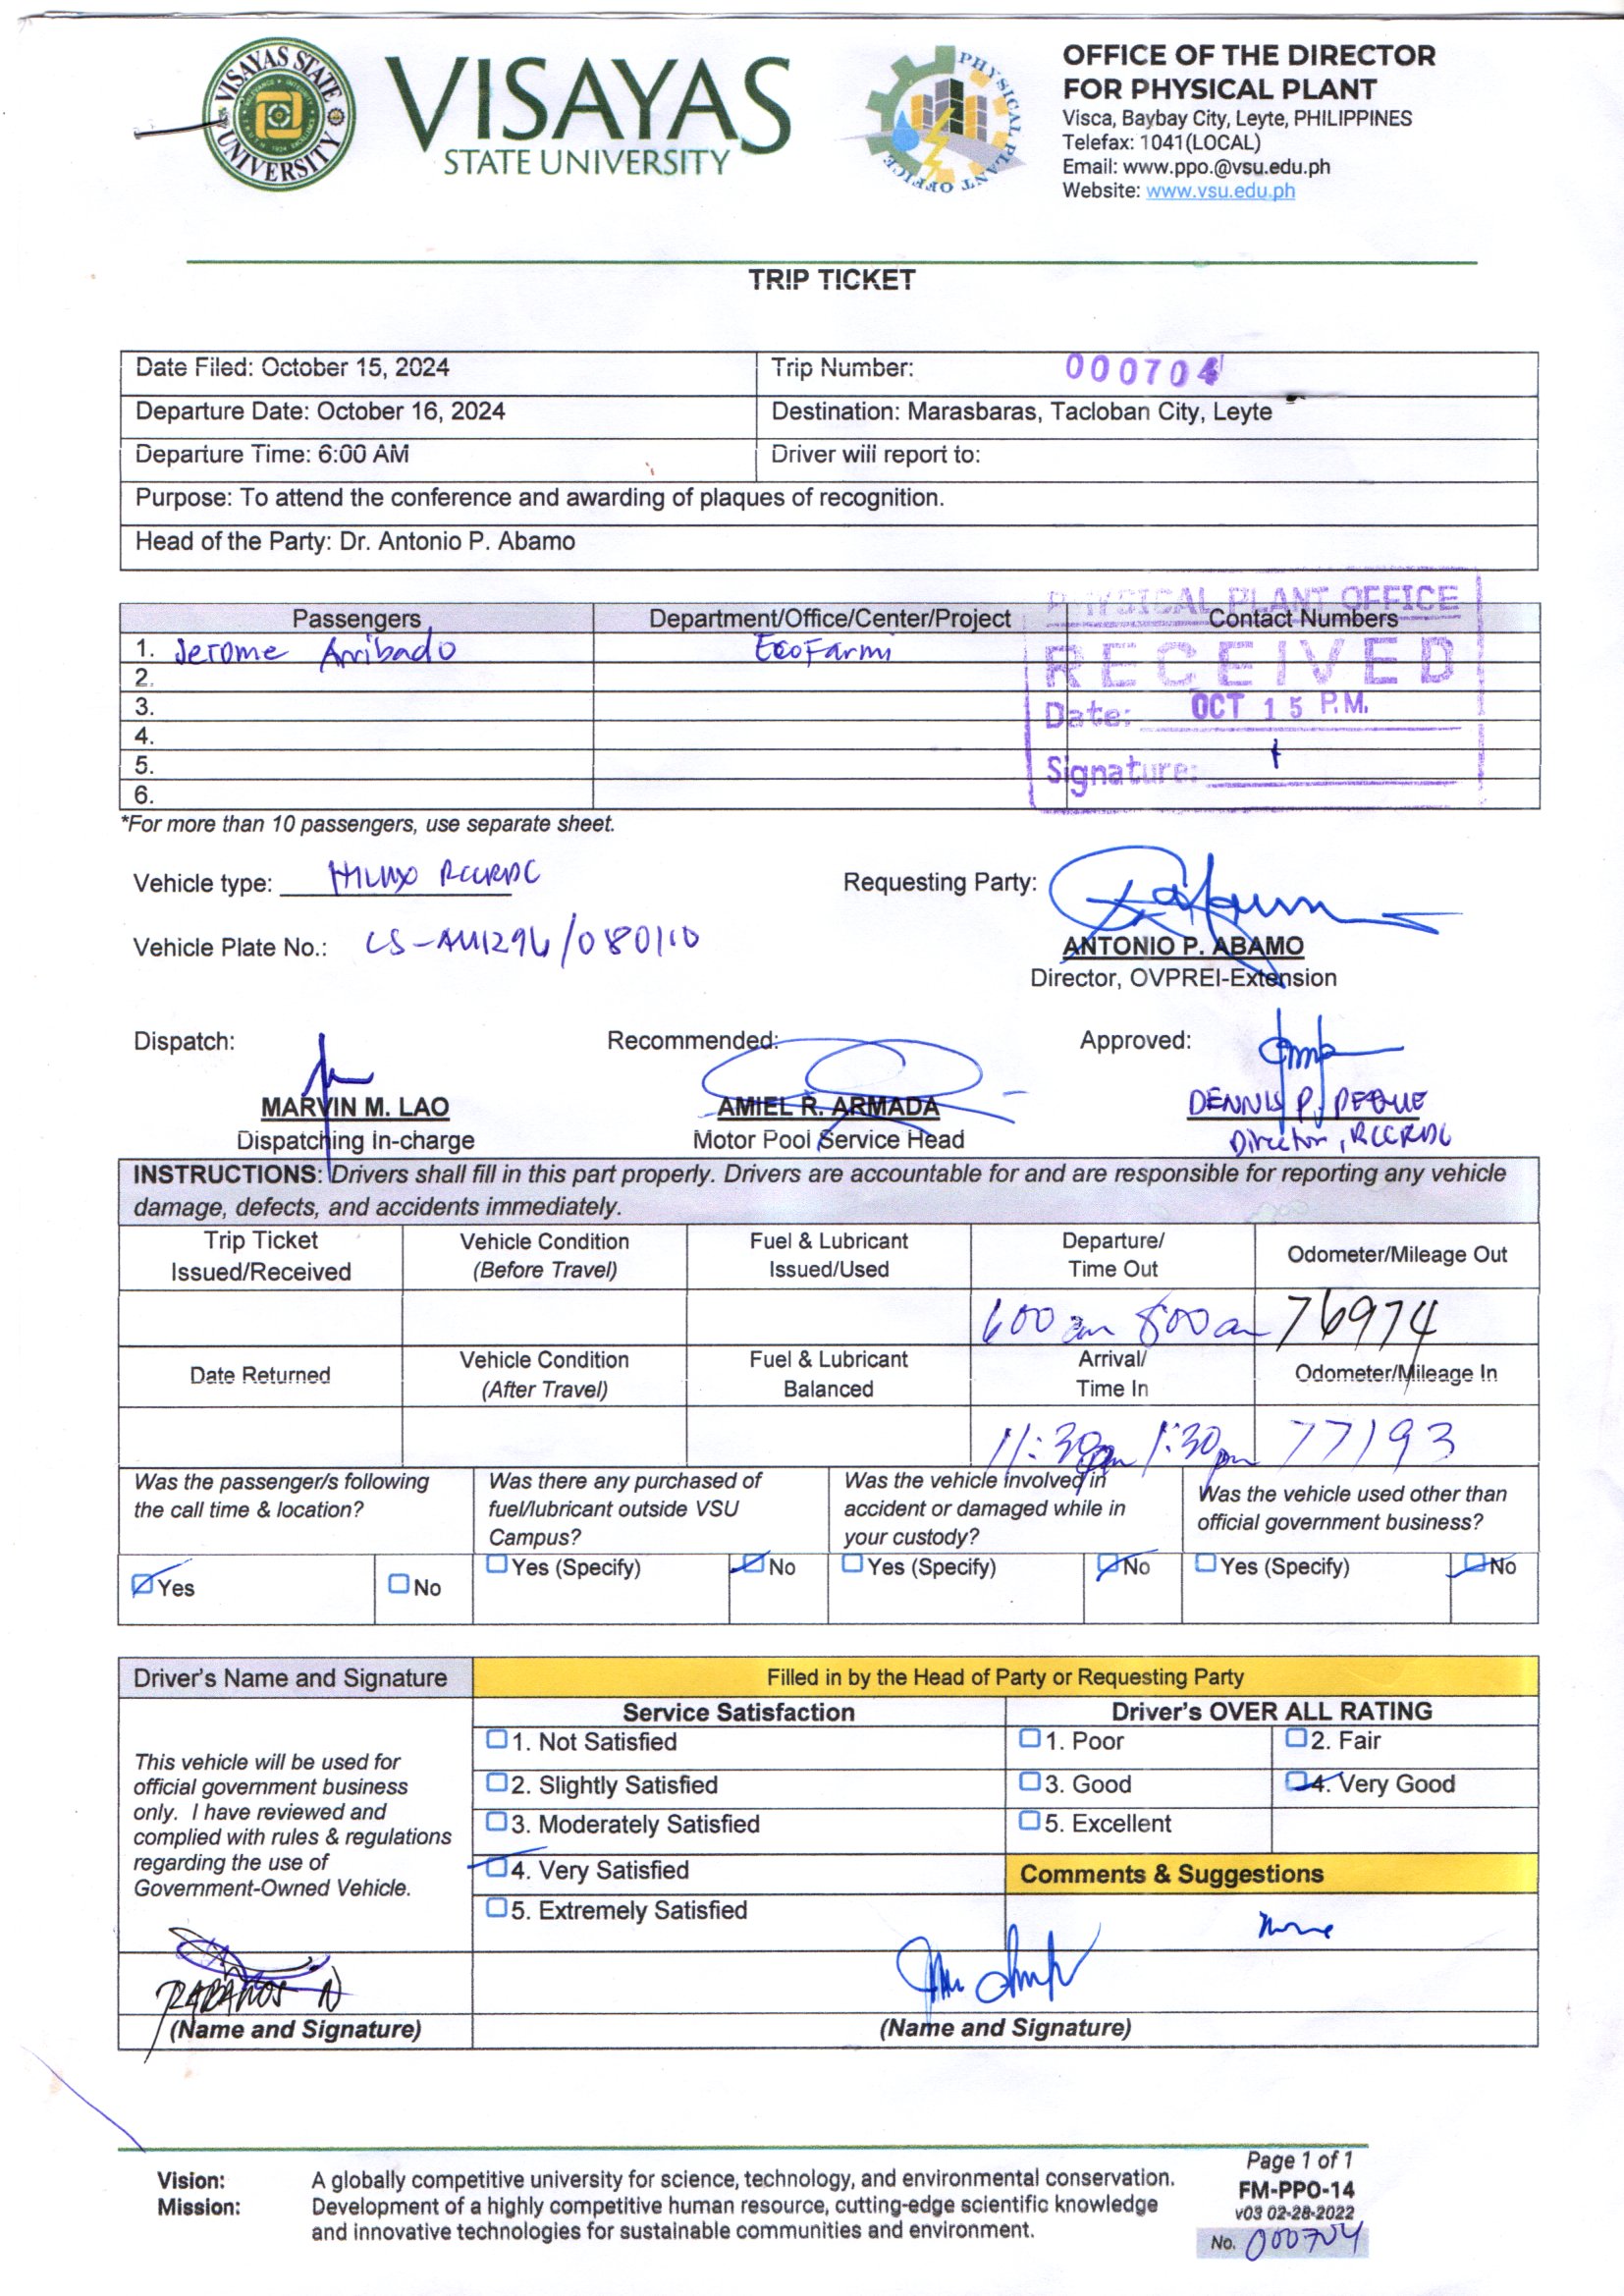 VISAYAS STATE UNIVERSITY
VISAYAS
STATE UNIVERSITY
PHYSICAL PLANT OFFICE
OFFICE OF THE DIRECTOR
FOR PHYSICAL PLANT
Visca, Baybay City, Leyte, PHILIPPINES
Telefax: 1041(LOCAL)
Email: www.ppo.@vsu.edu.ph
Website: www.vsu.edu.ph
TRIP TICKET
Date Filed: October 15, 2024 Trip Number: 000704
Departure Date: October 16, 2024 Destination: Marasbaras, Tacloban City, Leyte
Departure Time: 6:00 AM Driver will report to:
Purpose: To attend the conference and awarding of plaques of recognition.
Head of the Party: Dr. Antonio P. Abamo
PHYSICAL PLANT OFFICE
Passengers Department/Office/Center/Project Contact Numbers
1. Jerome Arribado EcoFarmi
RECEIVED
2.
3.
Date: OCT 15 P.M.
4.
5.
Signature:
6.
*For more than 10 passengers, use separate sheet.
Vehicle type: Hilux RCCRDC Requesting Party:
Vehicle Plate No.: /080110
ANTONIO P. ABAMO
Director, OVPREI-Extension
Dispatch: Recommended: Approved:
MARVIN M. LAO AMIEL R. ARMADA DENNIS P. PEQUE
Dispatching In-charge Motor Pool Service Head Director, RCCRDC
INSTRUCTIONS: Drivers shall fill in this part properly. Drivers are accountable for and are responsible for reporting any vehicle
damage, defects, and accidents immediately.
Trip Ticket Vehicle Condition Fuel & Lubricant Departure/ Odometer/Mileage Out
Issued/Received (Before Travel) Issued/Used Time Out
600 am 800 am 76974
Date Returned Vehicle Condition Fuel & Lubricant Arrival/ Odometer/Mileage In
(After Travel) Balanced Time In
11:30 pm 1:30 pm 77193
Was the passenger/s following Was there any purchased of Was the vehicle involved in Was the vehicle used other than
the call time & location? fuel/lubricant outside VSU accident or damaged while in official government business?
Campus? your custody?
Yes No Yes (Specify) No Yes (Specify) No Yes (Specify) No
Driver's Name and Signature Filled in by the Head of Party or Requesting Party
Service Satisfaction Driver's OVER ALL RATING
This vehicle will be used for
official government business
only. I have reviewed and
complied with rules & regulations
regarding the use of
Government-Owned Vehicle.
1. Not Satisfied 1. Poor 2. Fair
2. Slightly Satisfied 3. Good 4. Very Good
3. Moderately Satisfied 5. Excellent
4. Very Satisfied Comments & Suggestions
5. Extremely Satisfied none
(Name and Signature) (Name and Signature)
Vision: A globally competitive university for science, technology, and environmental conservation.
Mission: Development of a highly competitive human resource, cutting-edge scientific knowledge
and innovative technologies for sustainable communities and environment.
Page 1 of 1
FM-PPO-14
v03 02-28-2022
No. 000704